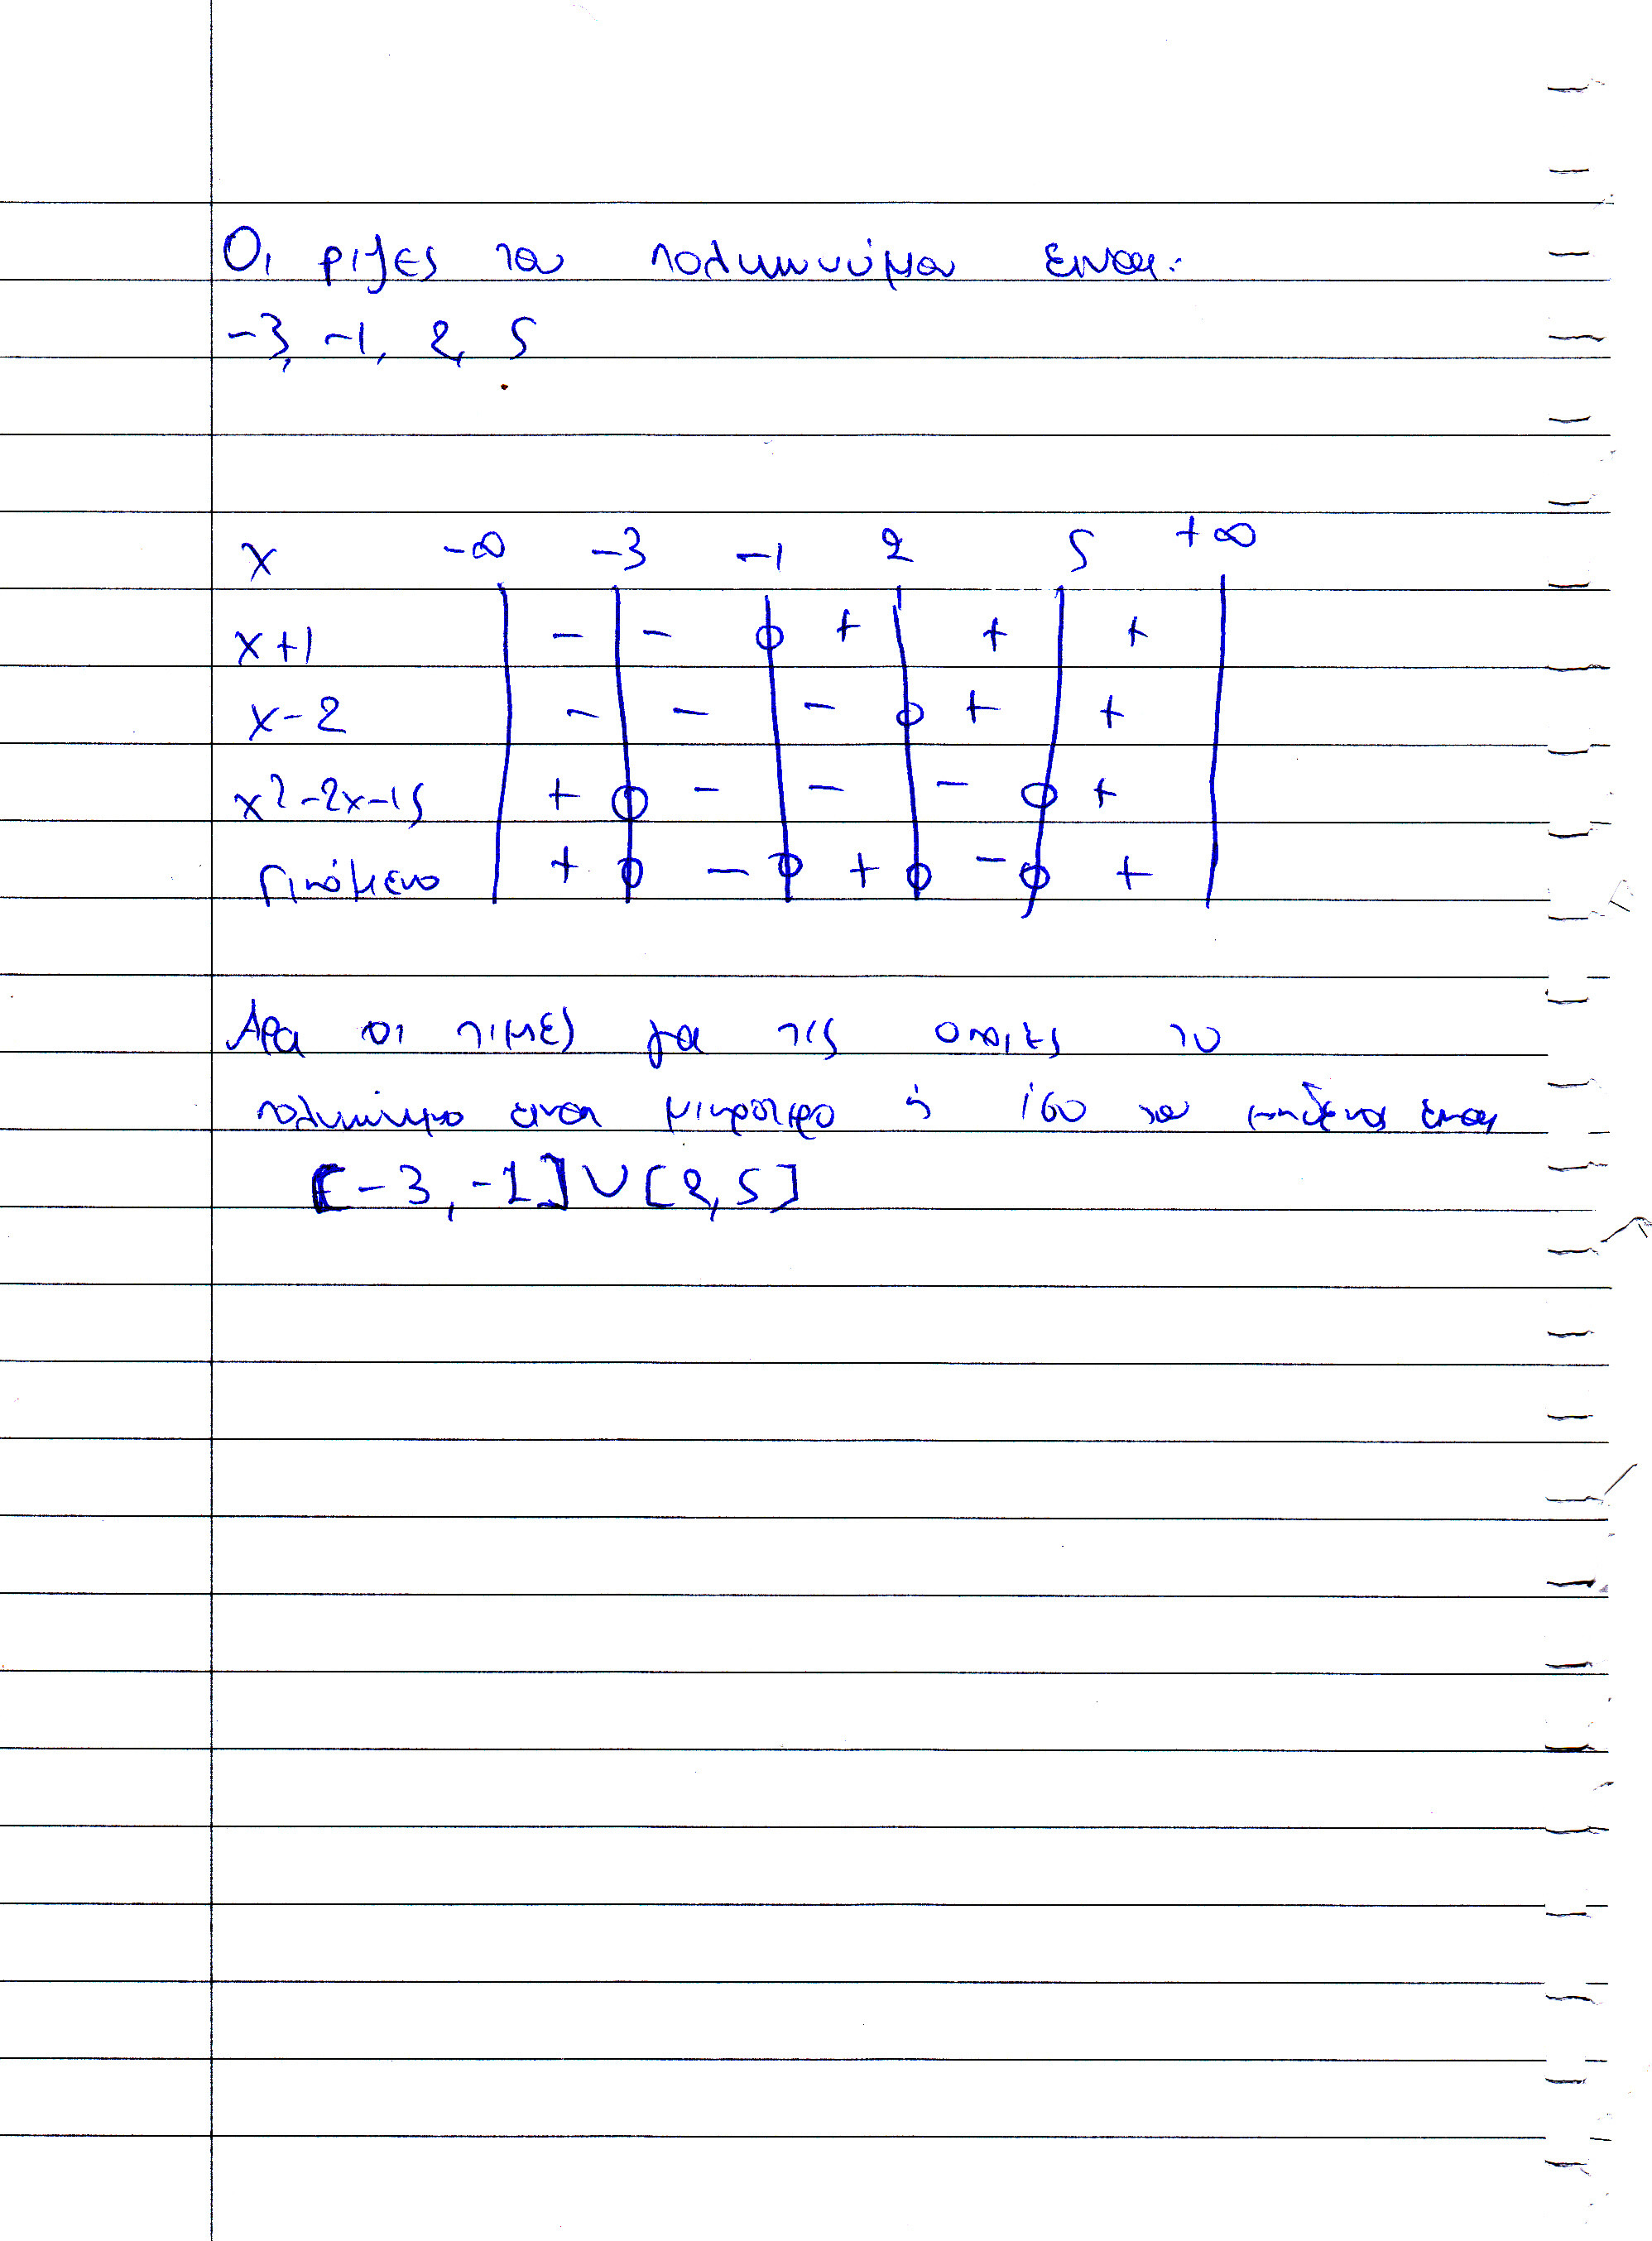 Οι ριζες του πολυωνύμου ειναι:
-3, -1, 2, 5
x -∞ -3 -1 2 5 +∞
x+1 - - + + +
x-2 - - - + +
x²-2x-15 + - - - +
Γινόμενο + - + - +
Άρα οι τιμές για τις οποιες το
πολυώνυμο ειναι μικρότερο ή ίσο του μηδενος ειναι
[-3,-1]∪[2,5]